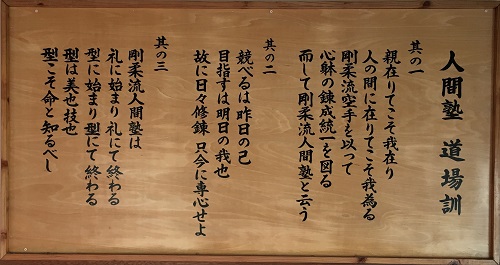 人間塾 道場訓
其の一
親在りてこそ我在り
人の間に在りてこそ我為る
剛柔流空手を以って
心躰の錬成統一を図る
而して剛柔流人間塾と云う
其の二
競べるは昨日の己
目指すは明日の我也
故に日々修錬 只今に専心せよ
其の三
剛柔流人間塾は
礼に始まり礼にて終わる
型に始まり型にて終わる
型は美也技也
型こそ命と知るべし